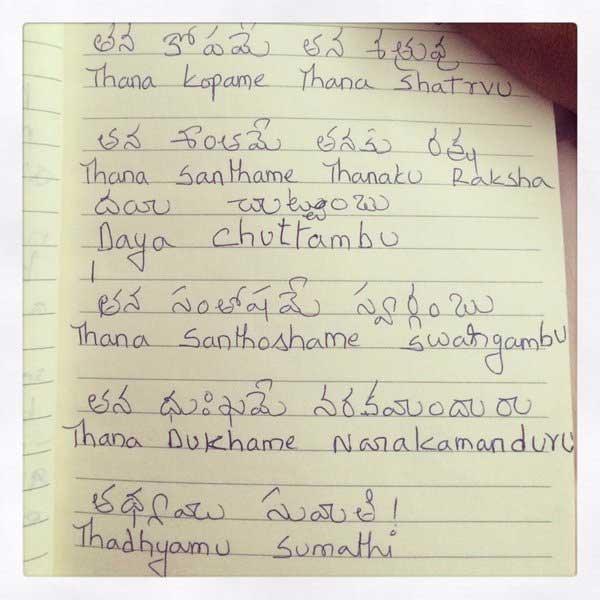 తన కోపమే తన శత్రువు
Thana Kopame Thana Shatrvu
తన శాంతమే తనకు రక్ష
Thana Santhame Thanaku Raksha
దయ చుట్టంబు
Daya Chuttambu
తన సంతోషమే స్వర్గంబు
Thana Santhoshame Swargambu
తన దుఃఖమే నరకమందురు
Thana Dukhame Narakamanduru
తథ్యము సుమతీ!
Thadhyamu Sumathi